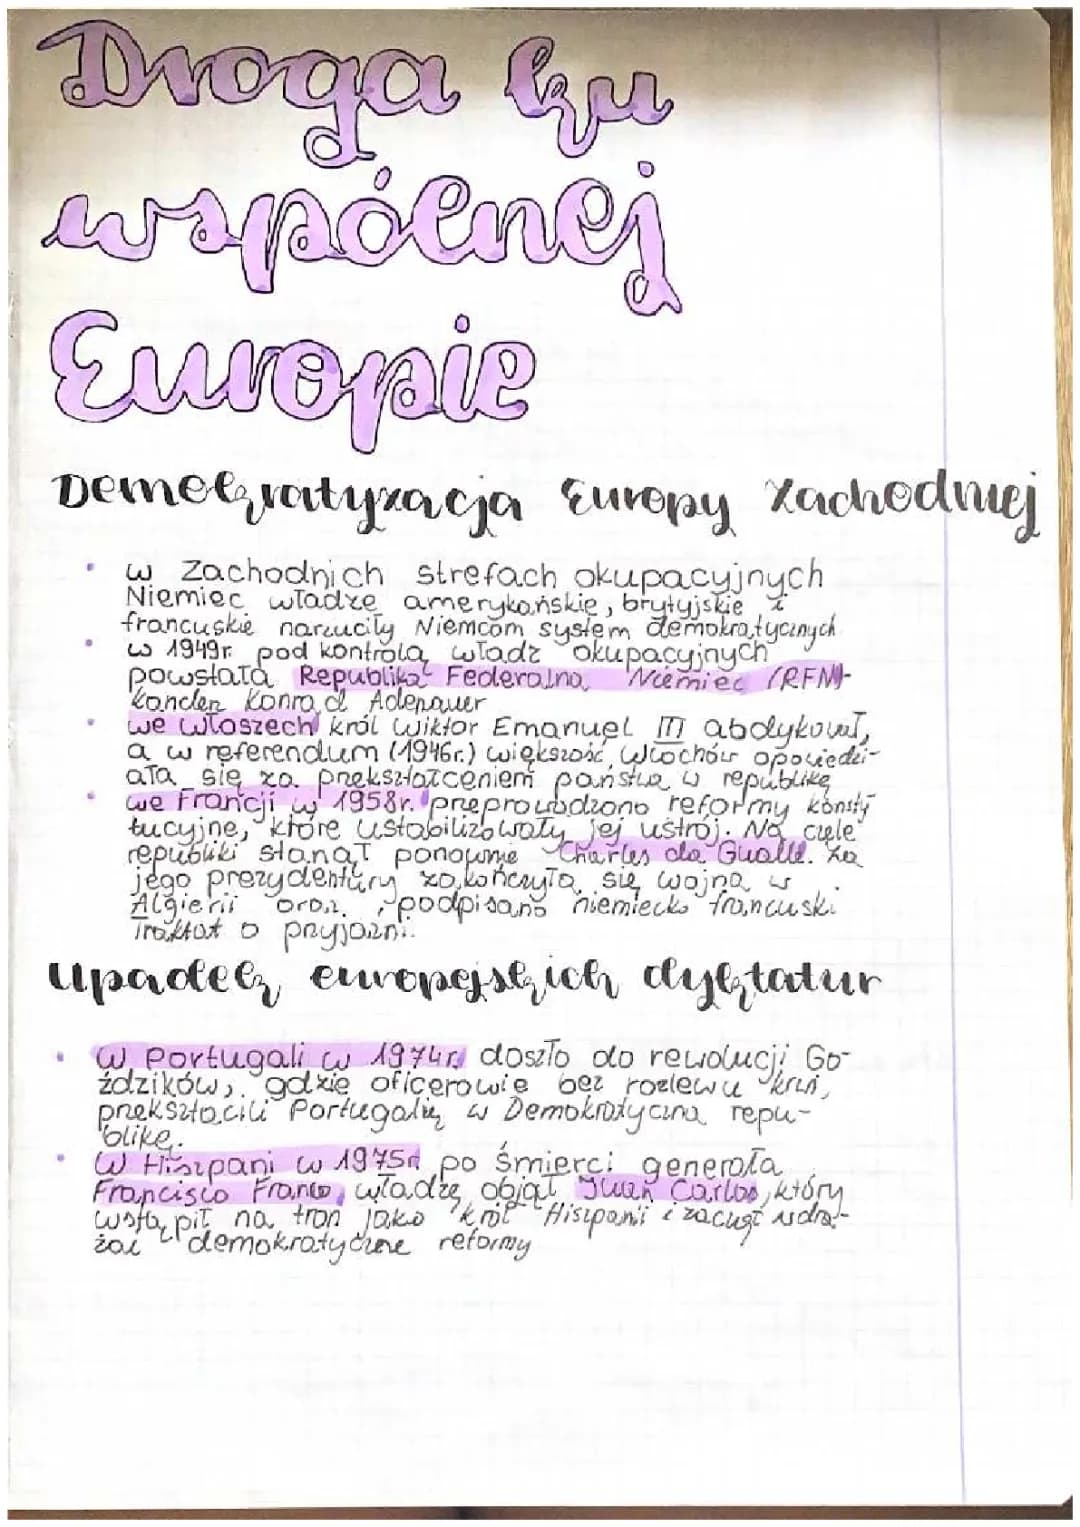 Droga ku
wspólnej
Europie
Demokratyzacja Europy Zachodniej
• w Zachodnich strefach okupacyjnych
Niemiec władze amerykańskie, brytyjskie i
francuskie narzuciły Niemcom system demokratycznych
• w 1949r. pod kontrolą władz okupacyjnych
powstała Republika Federalna Niemiec (RFN)-
kanclerz Konrad Adenauer
• we Włoszech król Wiktor Emanuel III abdykował,
a w referendum (1946r.) większość Włochów opowiedzi-
ała się za przekształceniem państwa w republikę
• we Francji w 1958r. przeprowadzono reformy konsty
tucyjne, które ustabilizowały jej ustrój. Na czele
republiki stanął ponownie Charles da Gualle. Za
jego prezydentury zakończyła się wojna w
Algierii oraz podpisano niemiecko francuski
Traktat o przyjaźni.
Upadek europejskich dyktatur
• W Portugali w 1974r. doszło do rewolucji Go-
ździków, gdzie oficerowie bez rozlewu krwi,
przekształcili Portugalię w Demokratyczną repu-
blikę.
• W Hiszpani w 1975r. po śmierci generała
Francisco Franco, władzę objął Juan Carlos, który
wstąpił na tron jako król Hiszpanii i zaczął wdra-
żać demokratyczne reformy